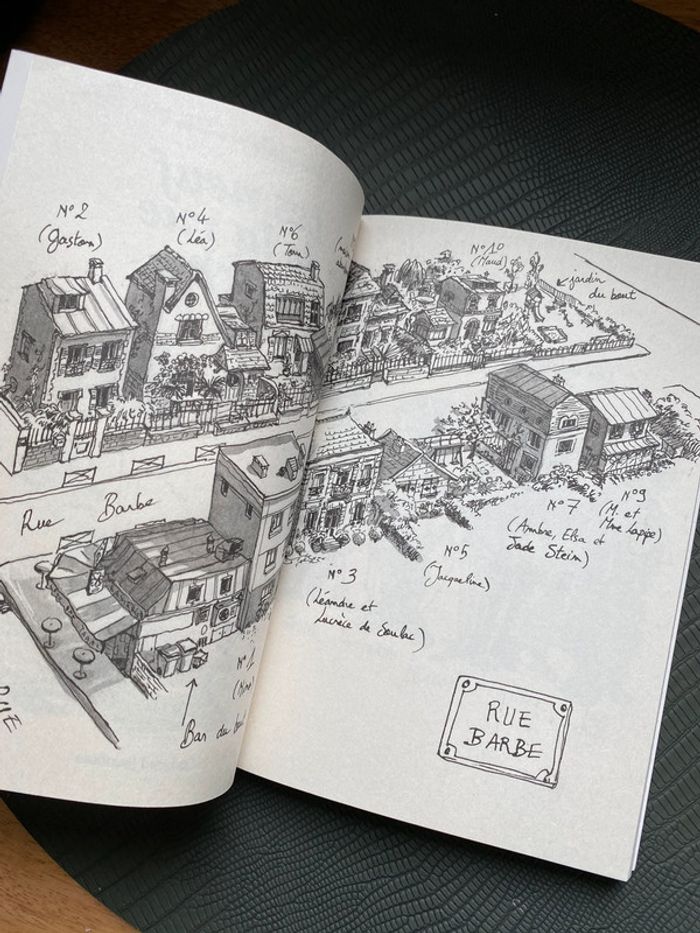 N° 2
(Gaston)
N° 4
(Léa)
N° 6
(Tom)
N° 10
(Maud)
jardin
du bout
Rue Barbe
N° 3
(Léandre et
Lucrèce de Soulac)
N° 5
(Jacqueline)
N° 7
(Ambre, Elsa et
Jade Steim)
N° 9
(M. et
Mme Lapipe)
Bar du
RUE
BARBE